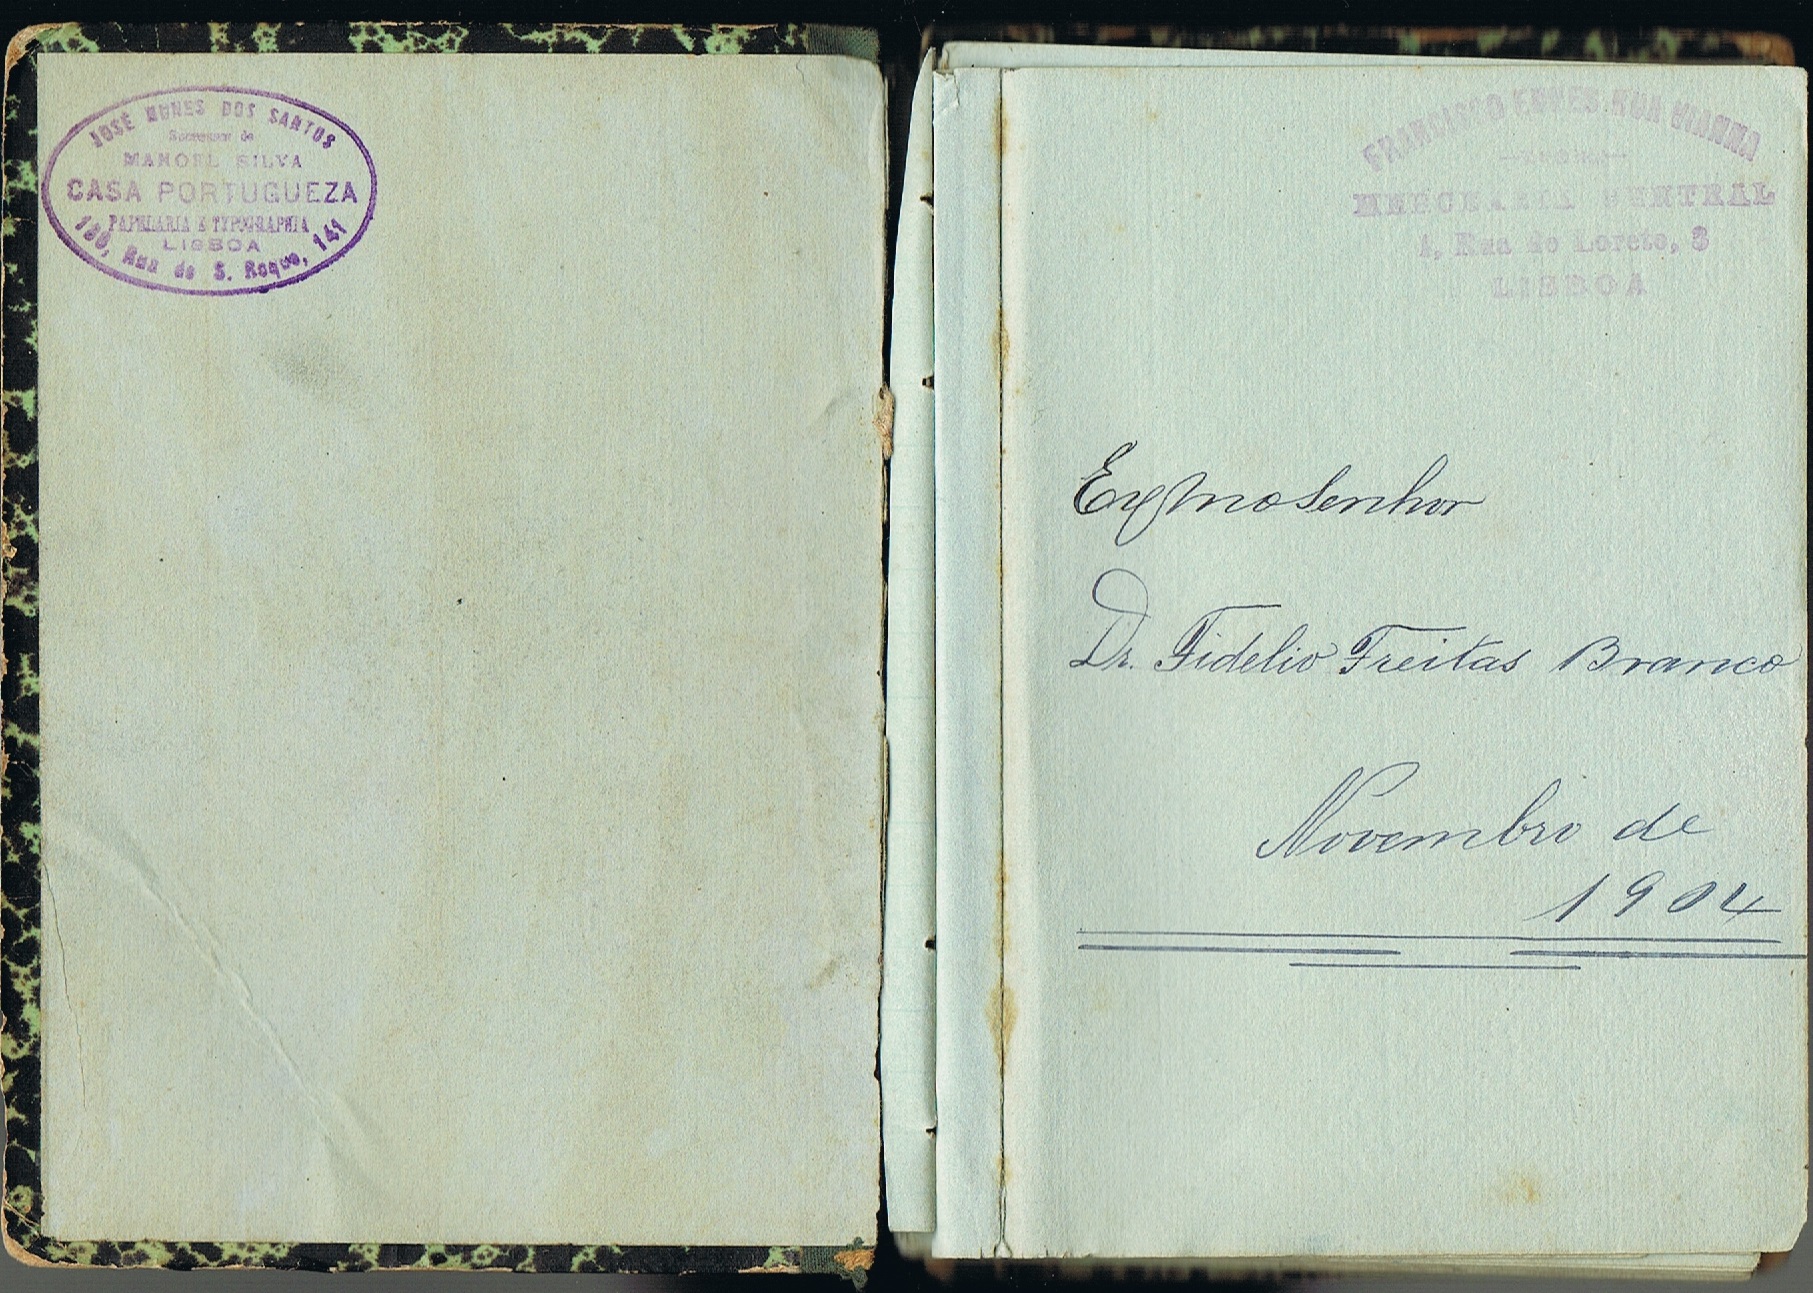 JOSÉ NUNES DOS SANTOS
Successor de
MANOEL SILVA
CASA PORTUGUEZA
PAPELARIA & TYPOGRAPHIA
LISBOA
139, Rua de S. Roque, 141
FRANCISCO VIANNA
MERCEARIA CENTRAL
1, Rua do Loreto, 3
LISBOA
Exmo Senhor
Dr. Fidelio Freitas Branco
Novembro de
1904